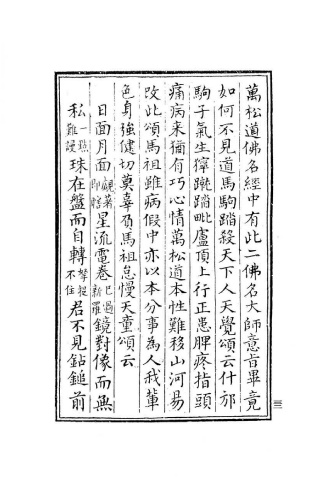 萬松道佛名經中有此二佛名大師意旨畢竟
如何不見道馬駒踏殺天下人天覺頌云什邡
駒子氣生獰蹴踏毗盧頂上行正患脾疼指頭
痛病来猶有巧心情萬松道本性難移山河易
改此頌馬祖雖病假中亦以本分事為人我輩
色身強健切莫辜負馬祖怠慢天童頌云
日面月面覷著即瞎星流電卷已過新羅鏡對像而無
私一點難謾珠在盤而自轉拏捉不住君不見鉗鎚前